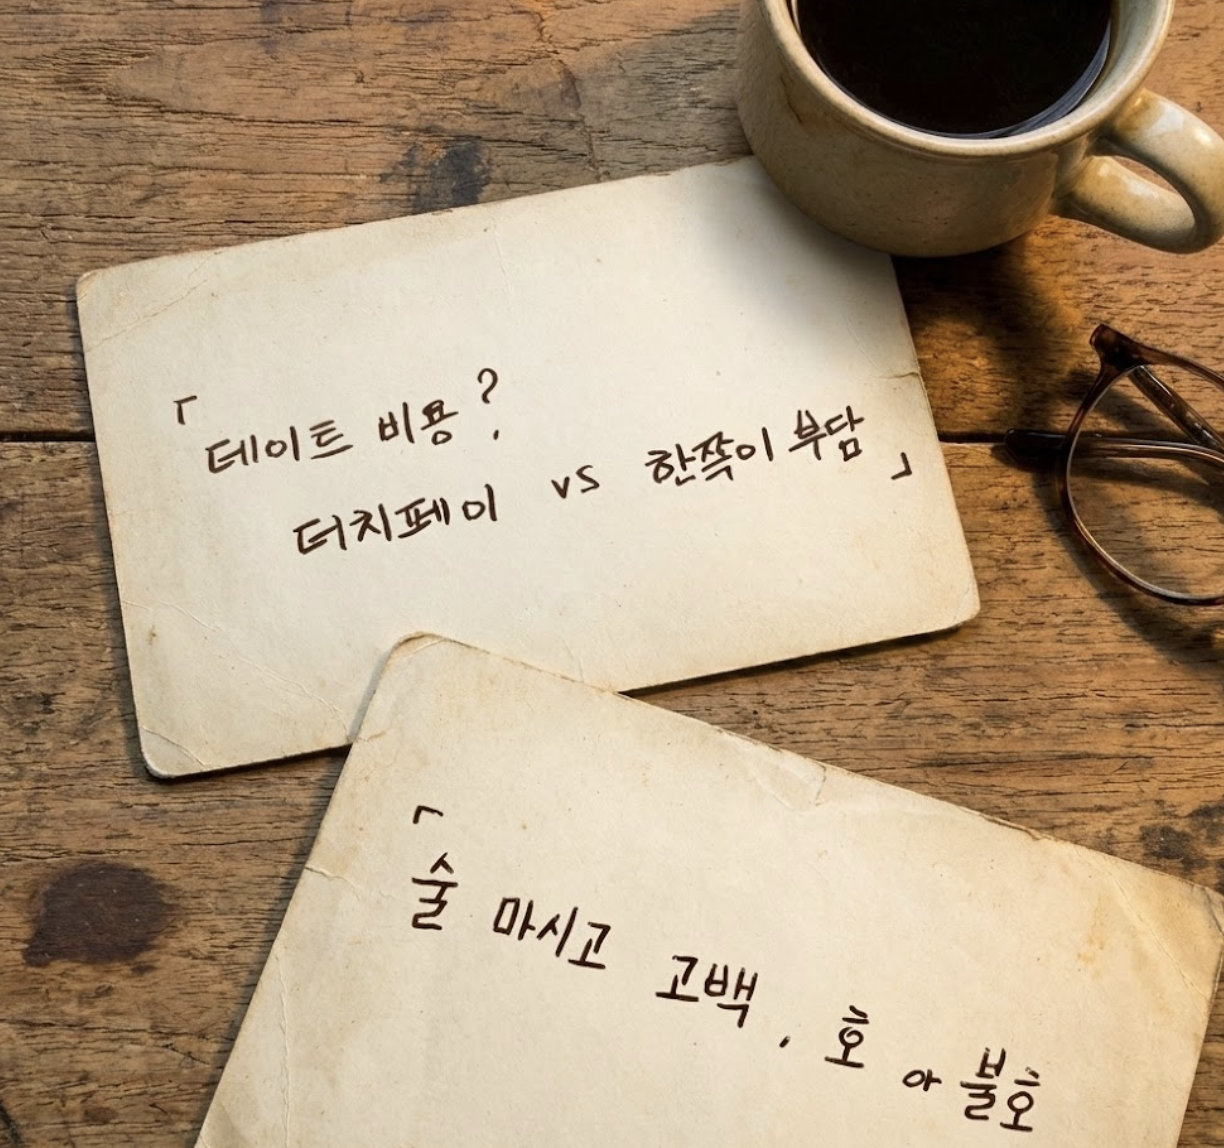 「데이트 비용?
터치페이 vs 한쪽이 부담」
「술 마시고 고백, 호 아 불호